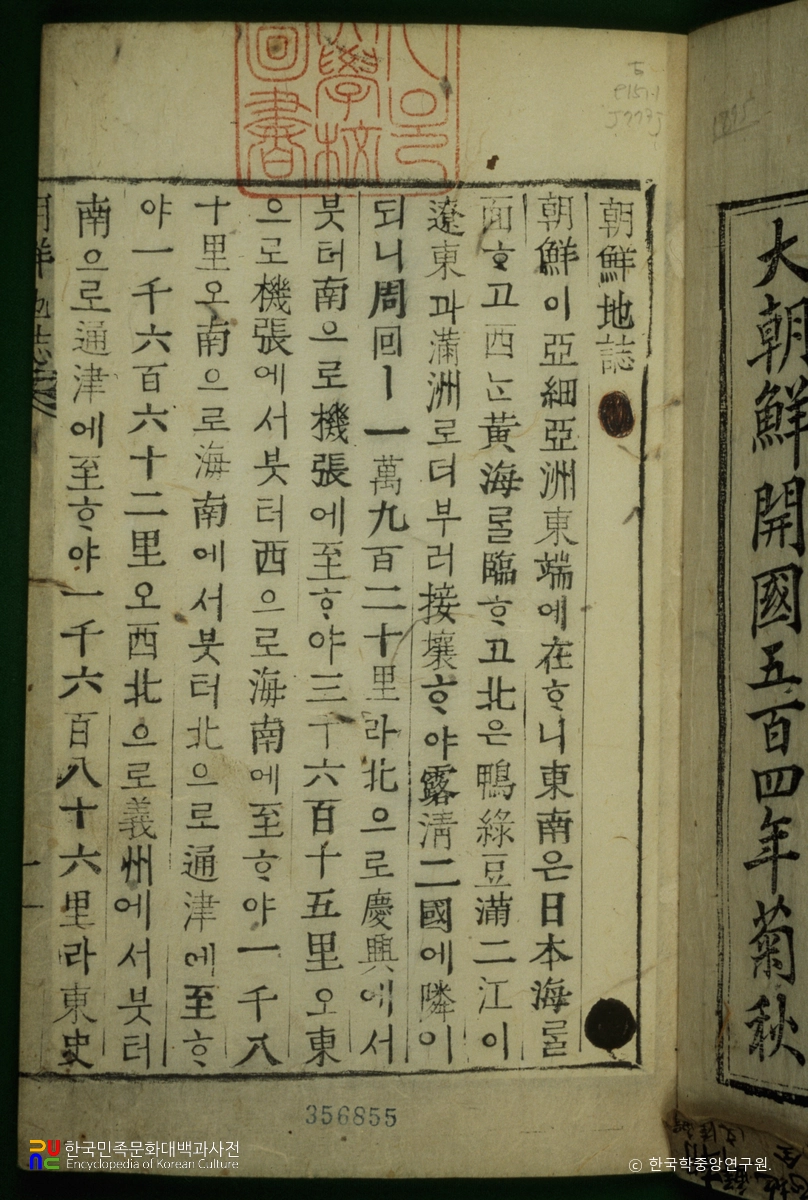 大朝鮮開國五百四年菊秋
朝鮮地誌
朝鮮이亞細亞洲東端에在ᄒᆞ니東南은日本海ᄅᆞᆯ
面ᄒᆞ고西ᄂᆞᆫ黃海ᄅᆞᆯ臨ᄒᆞ고北은鴨綠豆滿二江이
遼東과滿洲로더부러接壤ᄒᆞ야露淸二國에隣이
되니周回ㅣ一萬九百二十里라北으로慶興에서
븟터南으로機張에至ᄒᆞ야三千六百十五里오東
으로機張에서븟터西으로海南에至ᄒᆞ야一千八
十里오南으로海南에서븟터北으로通津에至ᄒᆞ
야一千六百六十二里오西北으로義州에서븟터
南으로通津에至ᄒᆞ야一千六百八十六里라東史
朝鮮地誌
一
圖書
學校
356855
한국민족문화대백과사전
Encyclopedia of Korean Culture
© 한국학중앙연구원.